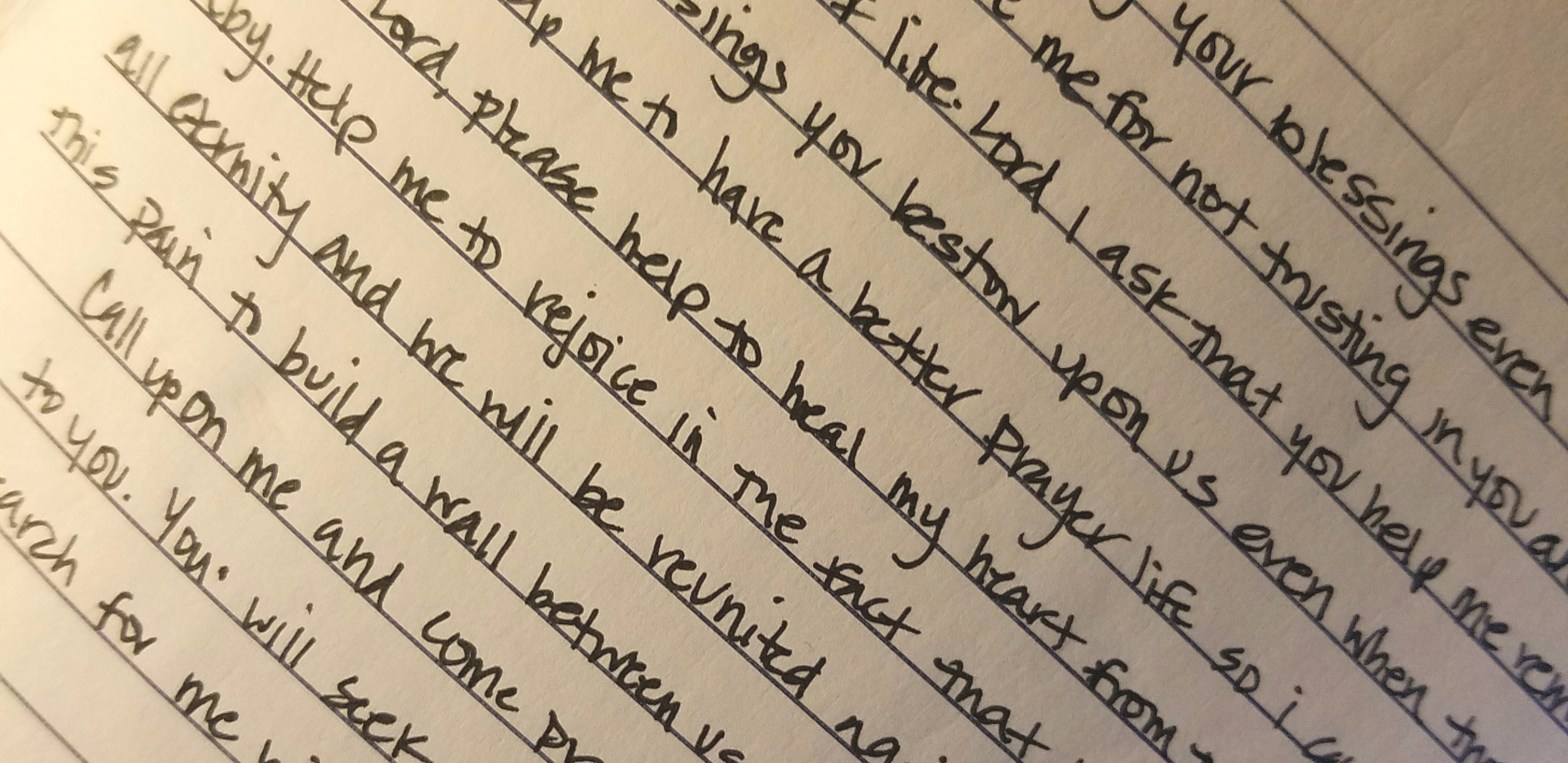 your blessings even
me for not trusting in you
life. Lord I ask that you help me
sings you bestow upon us even when
me to have a better prayer life so i
Lord, please help to heal my heart from
by. Help me to rejoice in the fact that
all eternity and we will be reunited
this pain to build a wall between us
Call upon me and come
to you. You will seek
for me